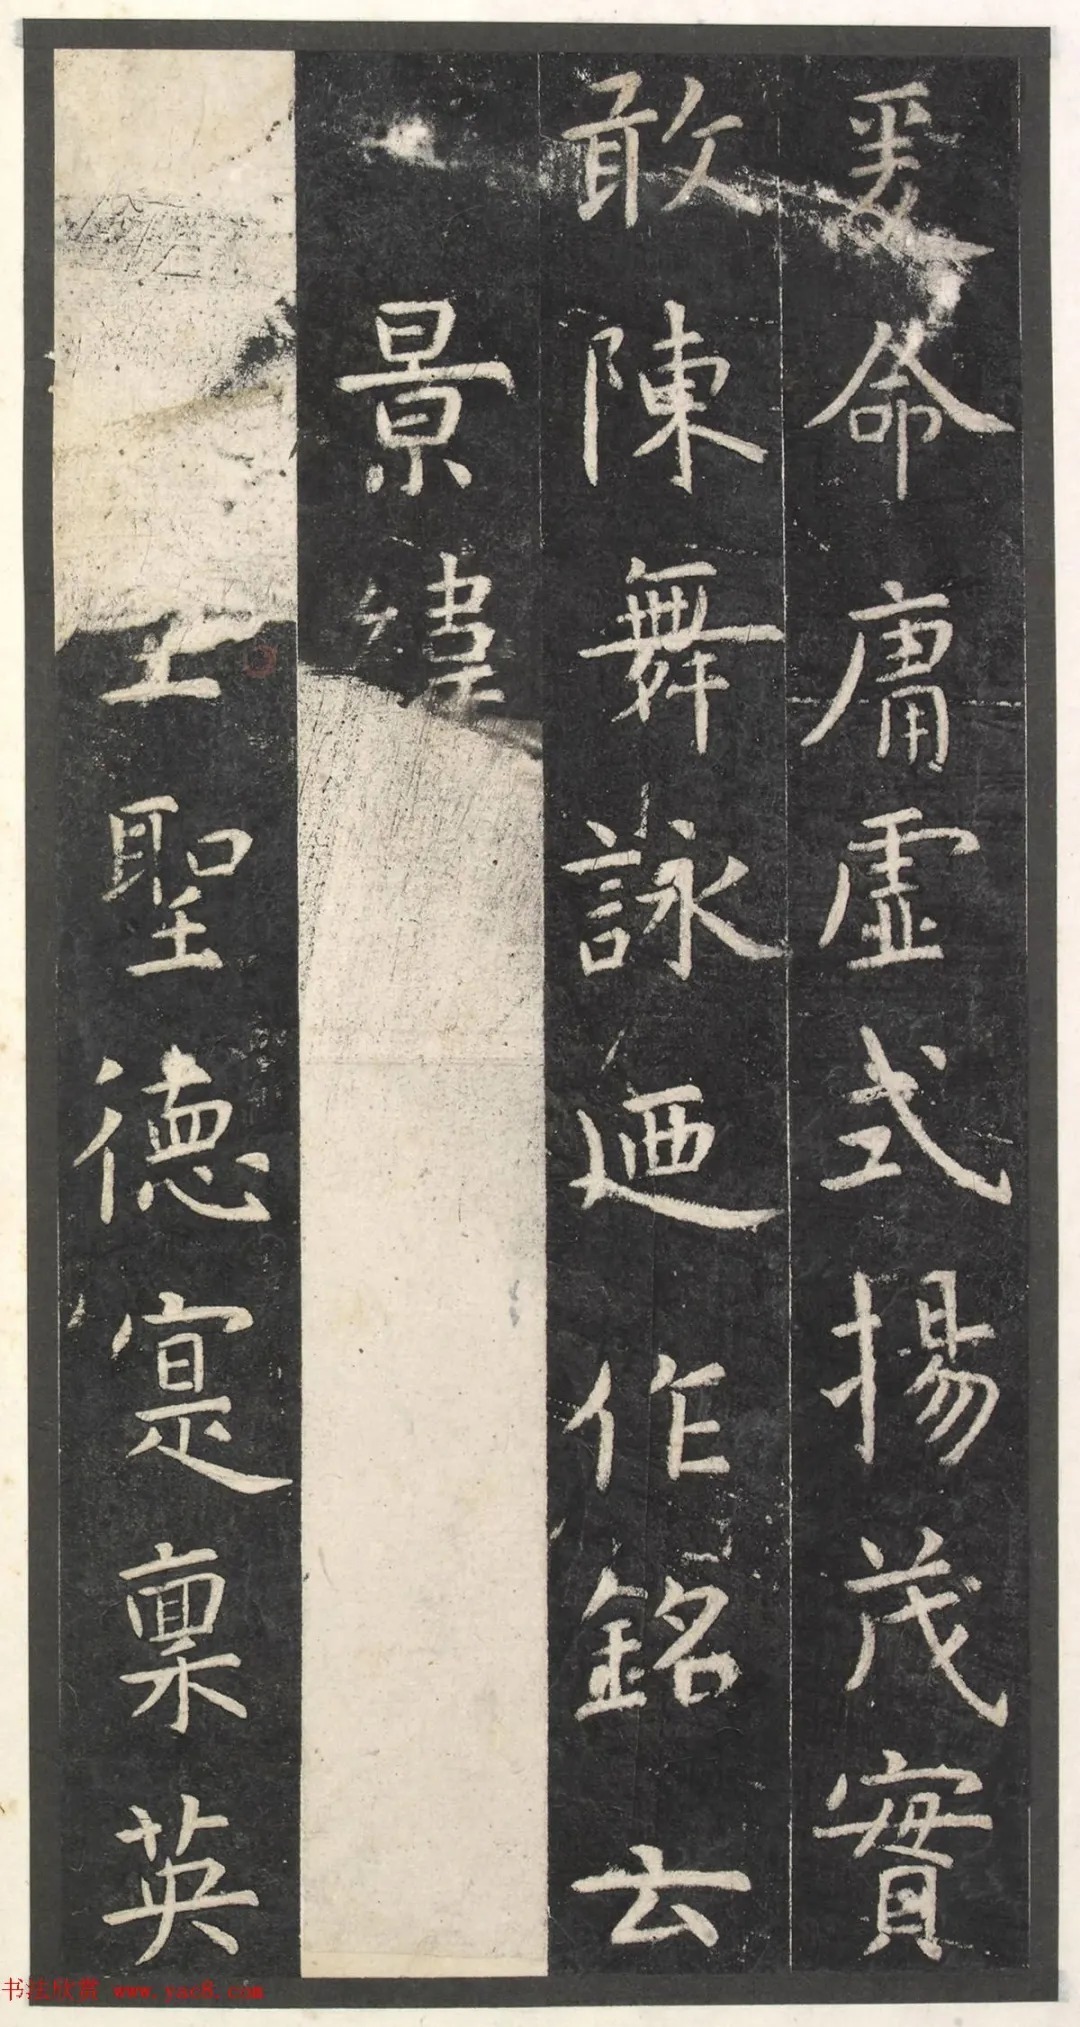 爰命庸虛式揚茂實
敢陳舞詠迺作銘云
景緯
上聖德寔稟英
书法欣赏 www.yac8.com